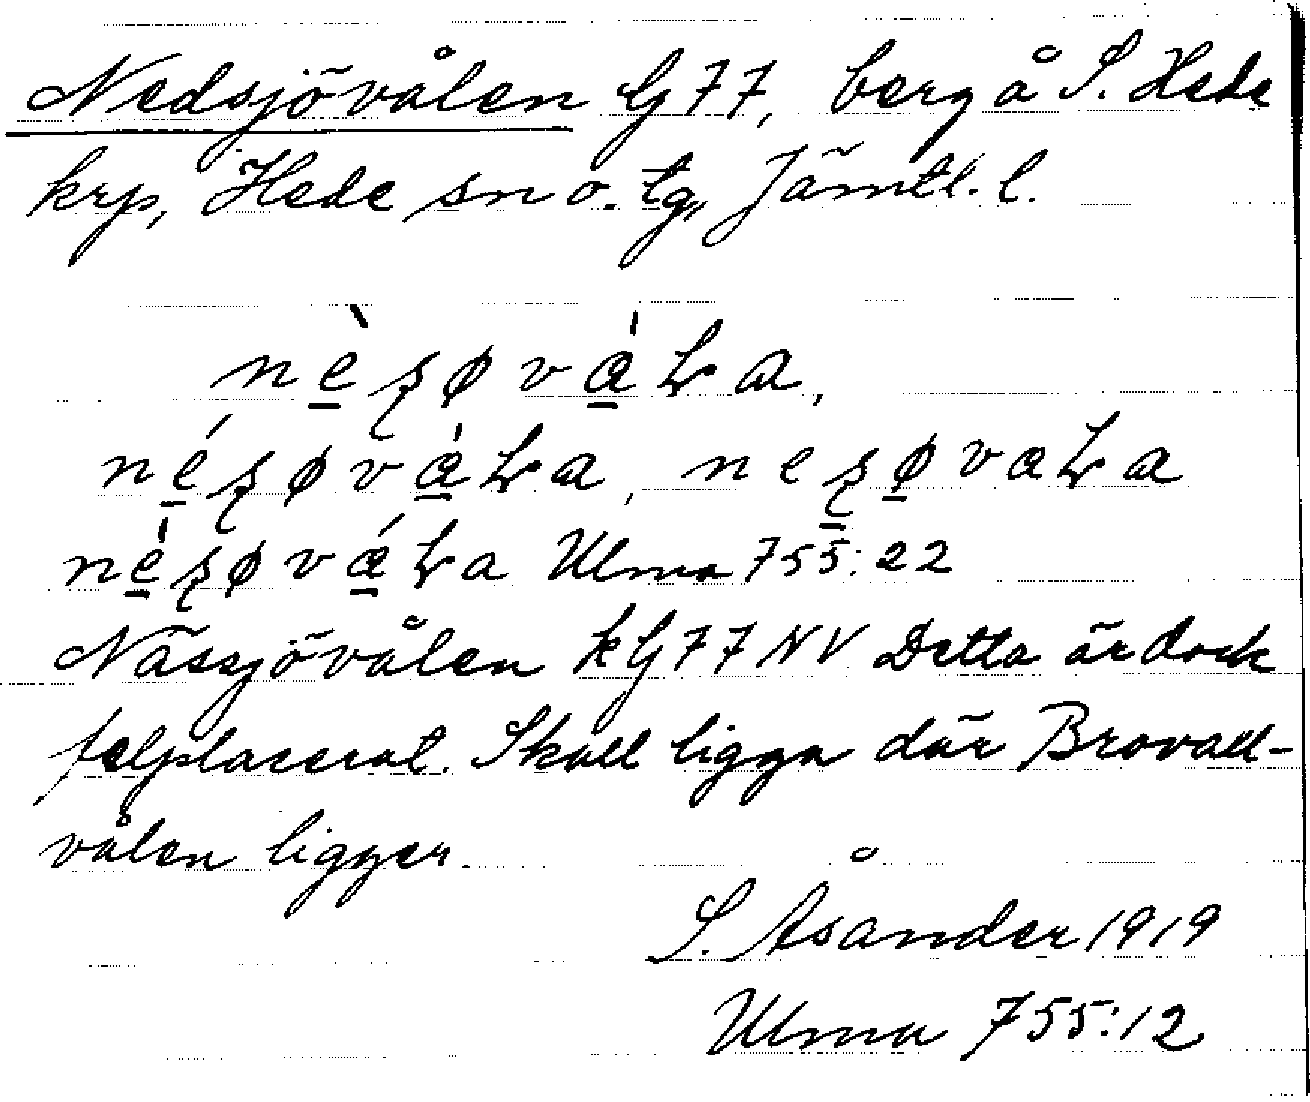 Nedsjövålen G 77, berg å S. Hede
krp, Hede sn o. tg, Jämtl. l.
Ulma 755:22
Nässjövålen k G 77 NV Detta är dock
felplacerat. Skall ligga där Brovall-
vålen ligger.
S. Åsander 1919
Ulma 755:12